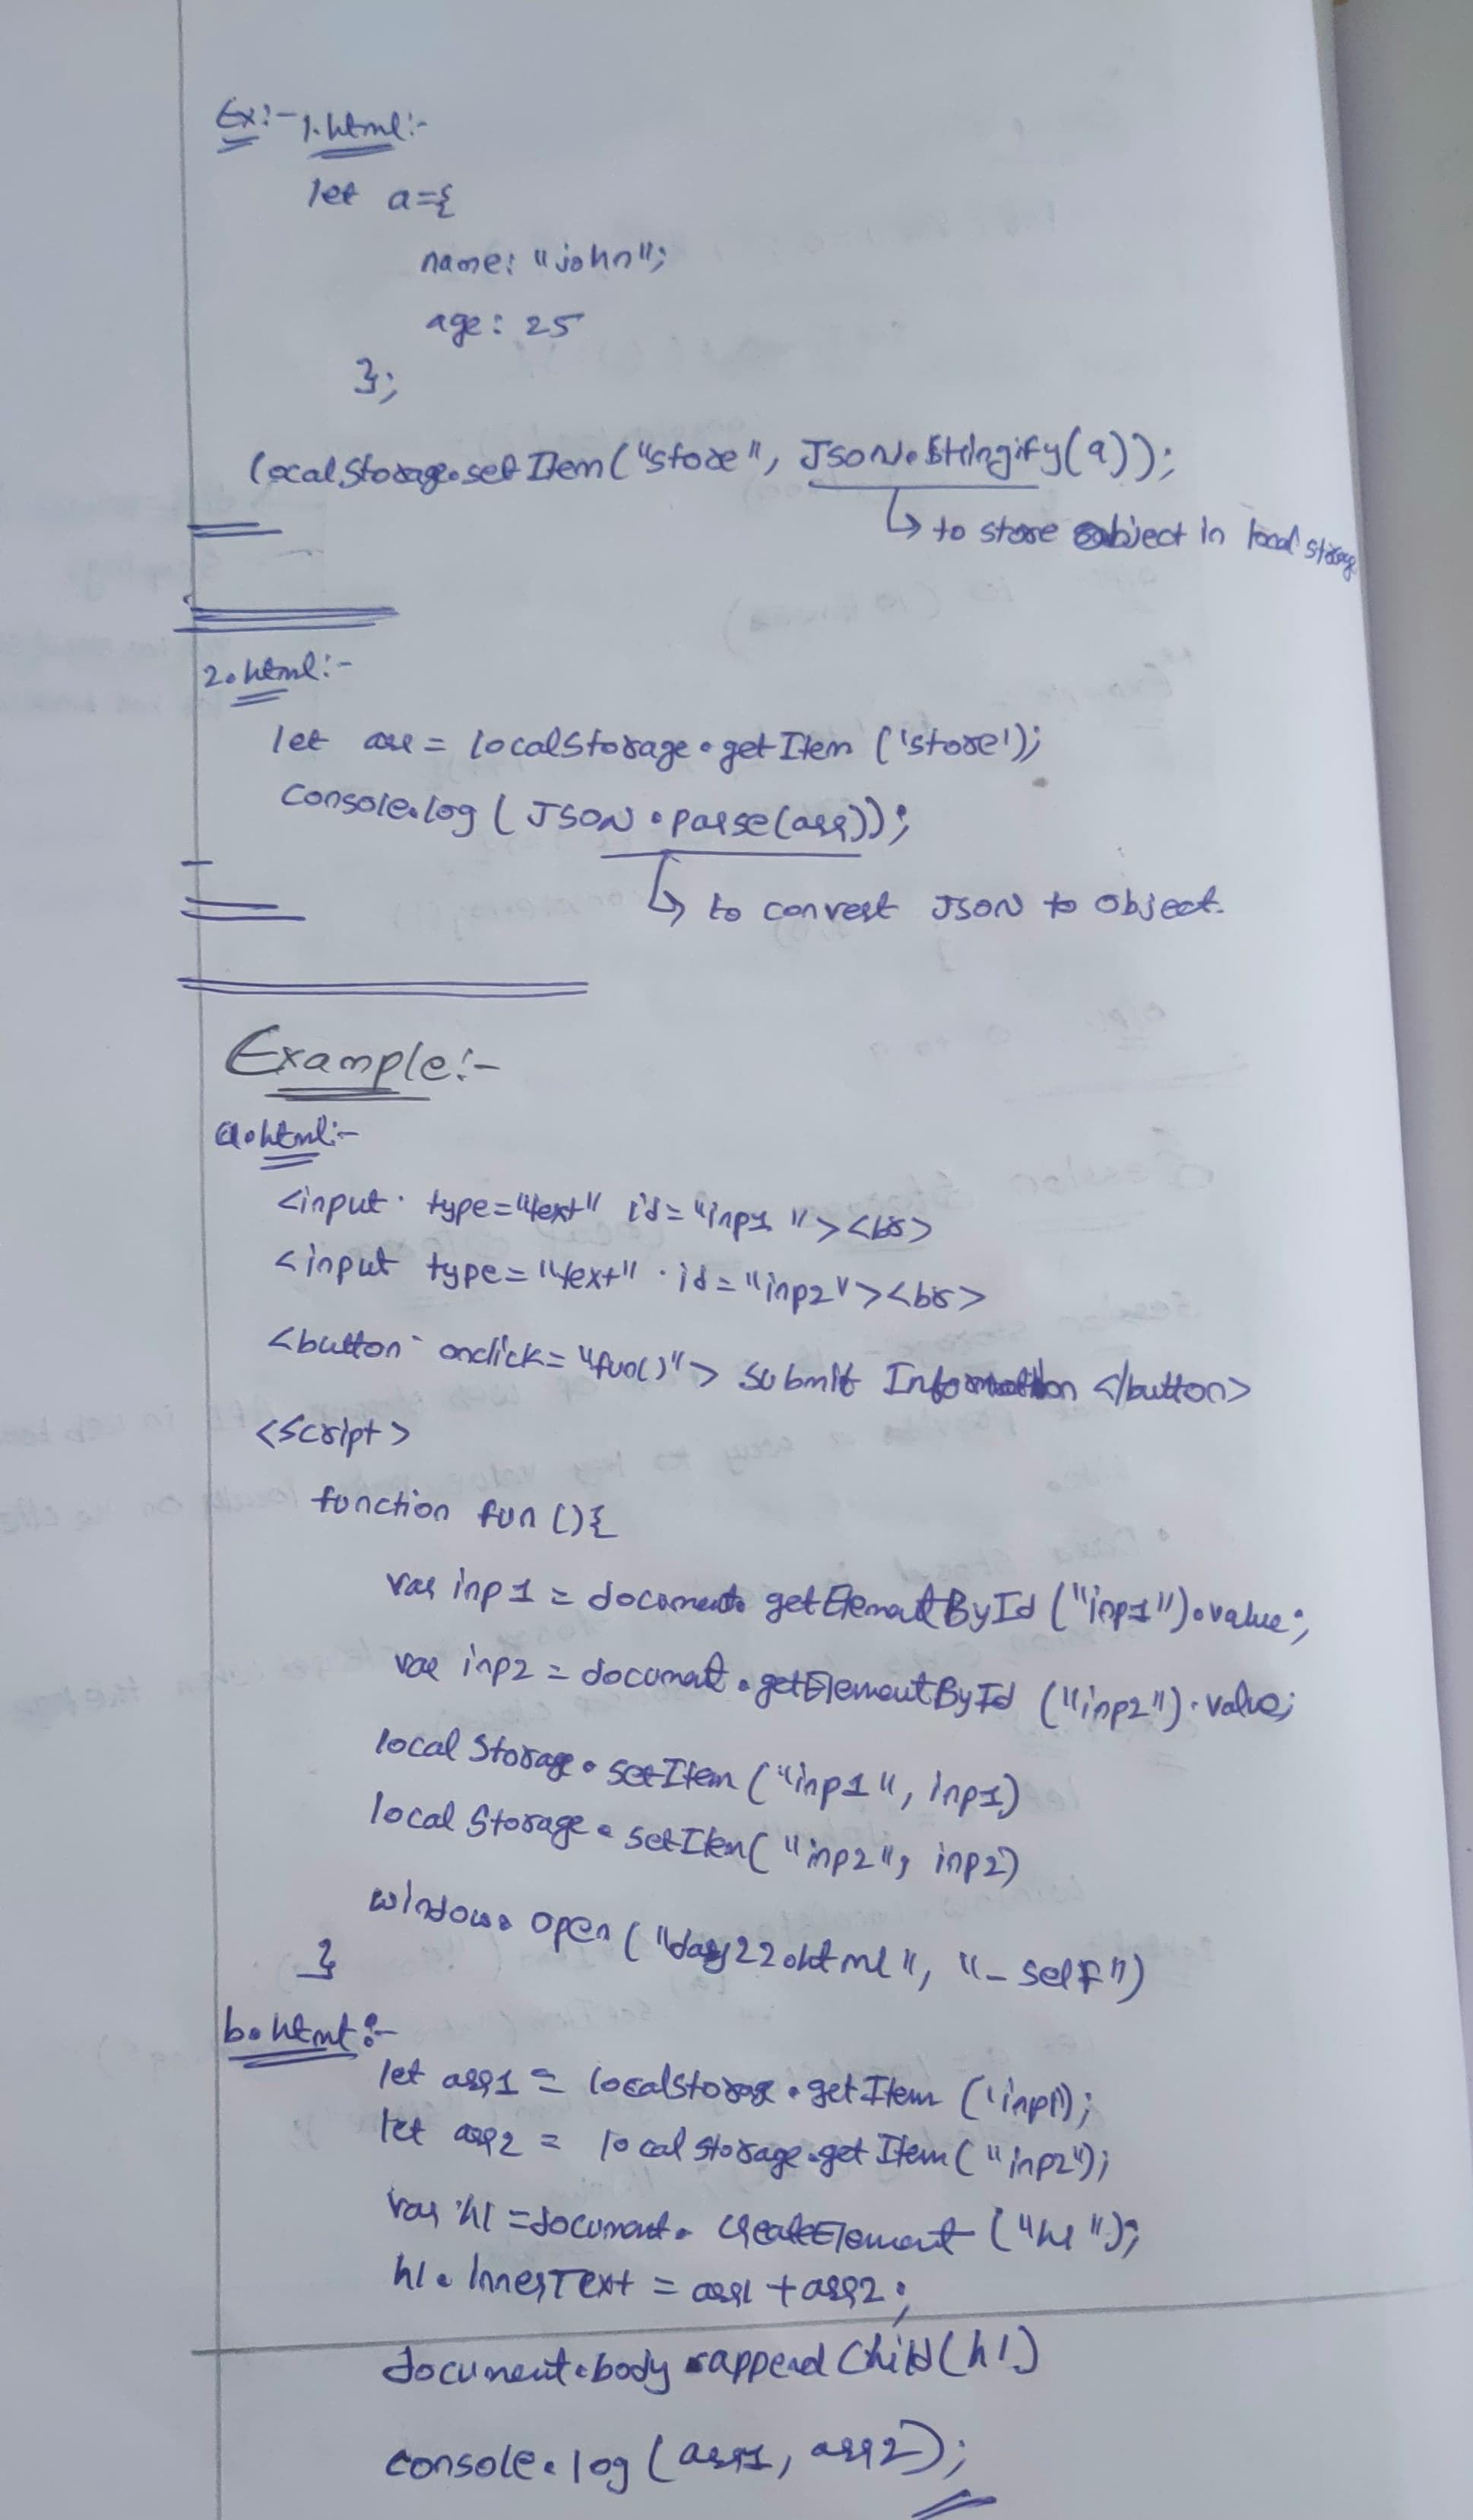 Ex:- 1.html:-
let a={
name: "john";
age: 25
};
localStorage.setItem("store", JSON.Stringify(a));
↳ to store object in local storage
2.html:-
let arr = localStorage.getItem ('store');
Console.log ( JSON.parse(arr));
↳ to convert JSON to object.
Example:-
a.html:-
<input type="text" id="inp1"><br>
<input type="text" id="inp2"><br>
<button onclick="fun()"> Submit Information </button>
<Script>
function fun (){
var inp1 = document.getElementById ("inp1").value;
var inp2 = document.getElementById ("inp2").value;
local Storage.setItem ("inp1", inp1)
local Storage.setItem( "inp2", inp2)
window.open ( "day22.html", "_self")
}
b.html:-
let arr1 = localstorage.getItem ('inp1');
let arr2 = local storage.get Item ( "inp2");
var h1 =document.createElement ("h1");
h1.InnerText = arr1 +arr2;
document.body.append Child(h1)
console.log (arr1, arr2);